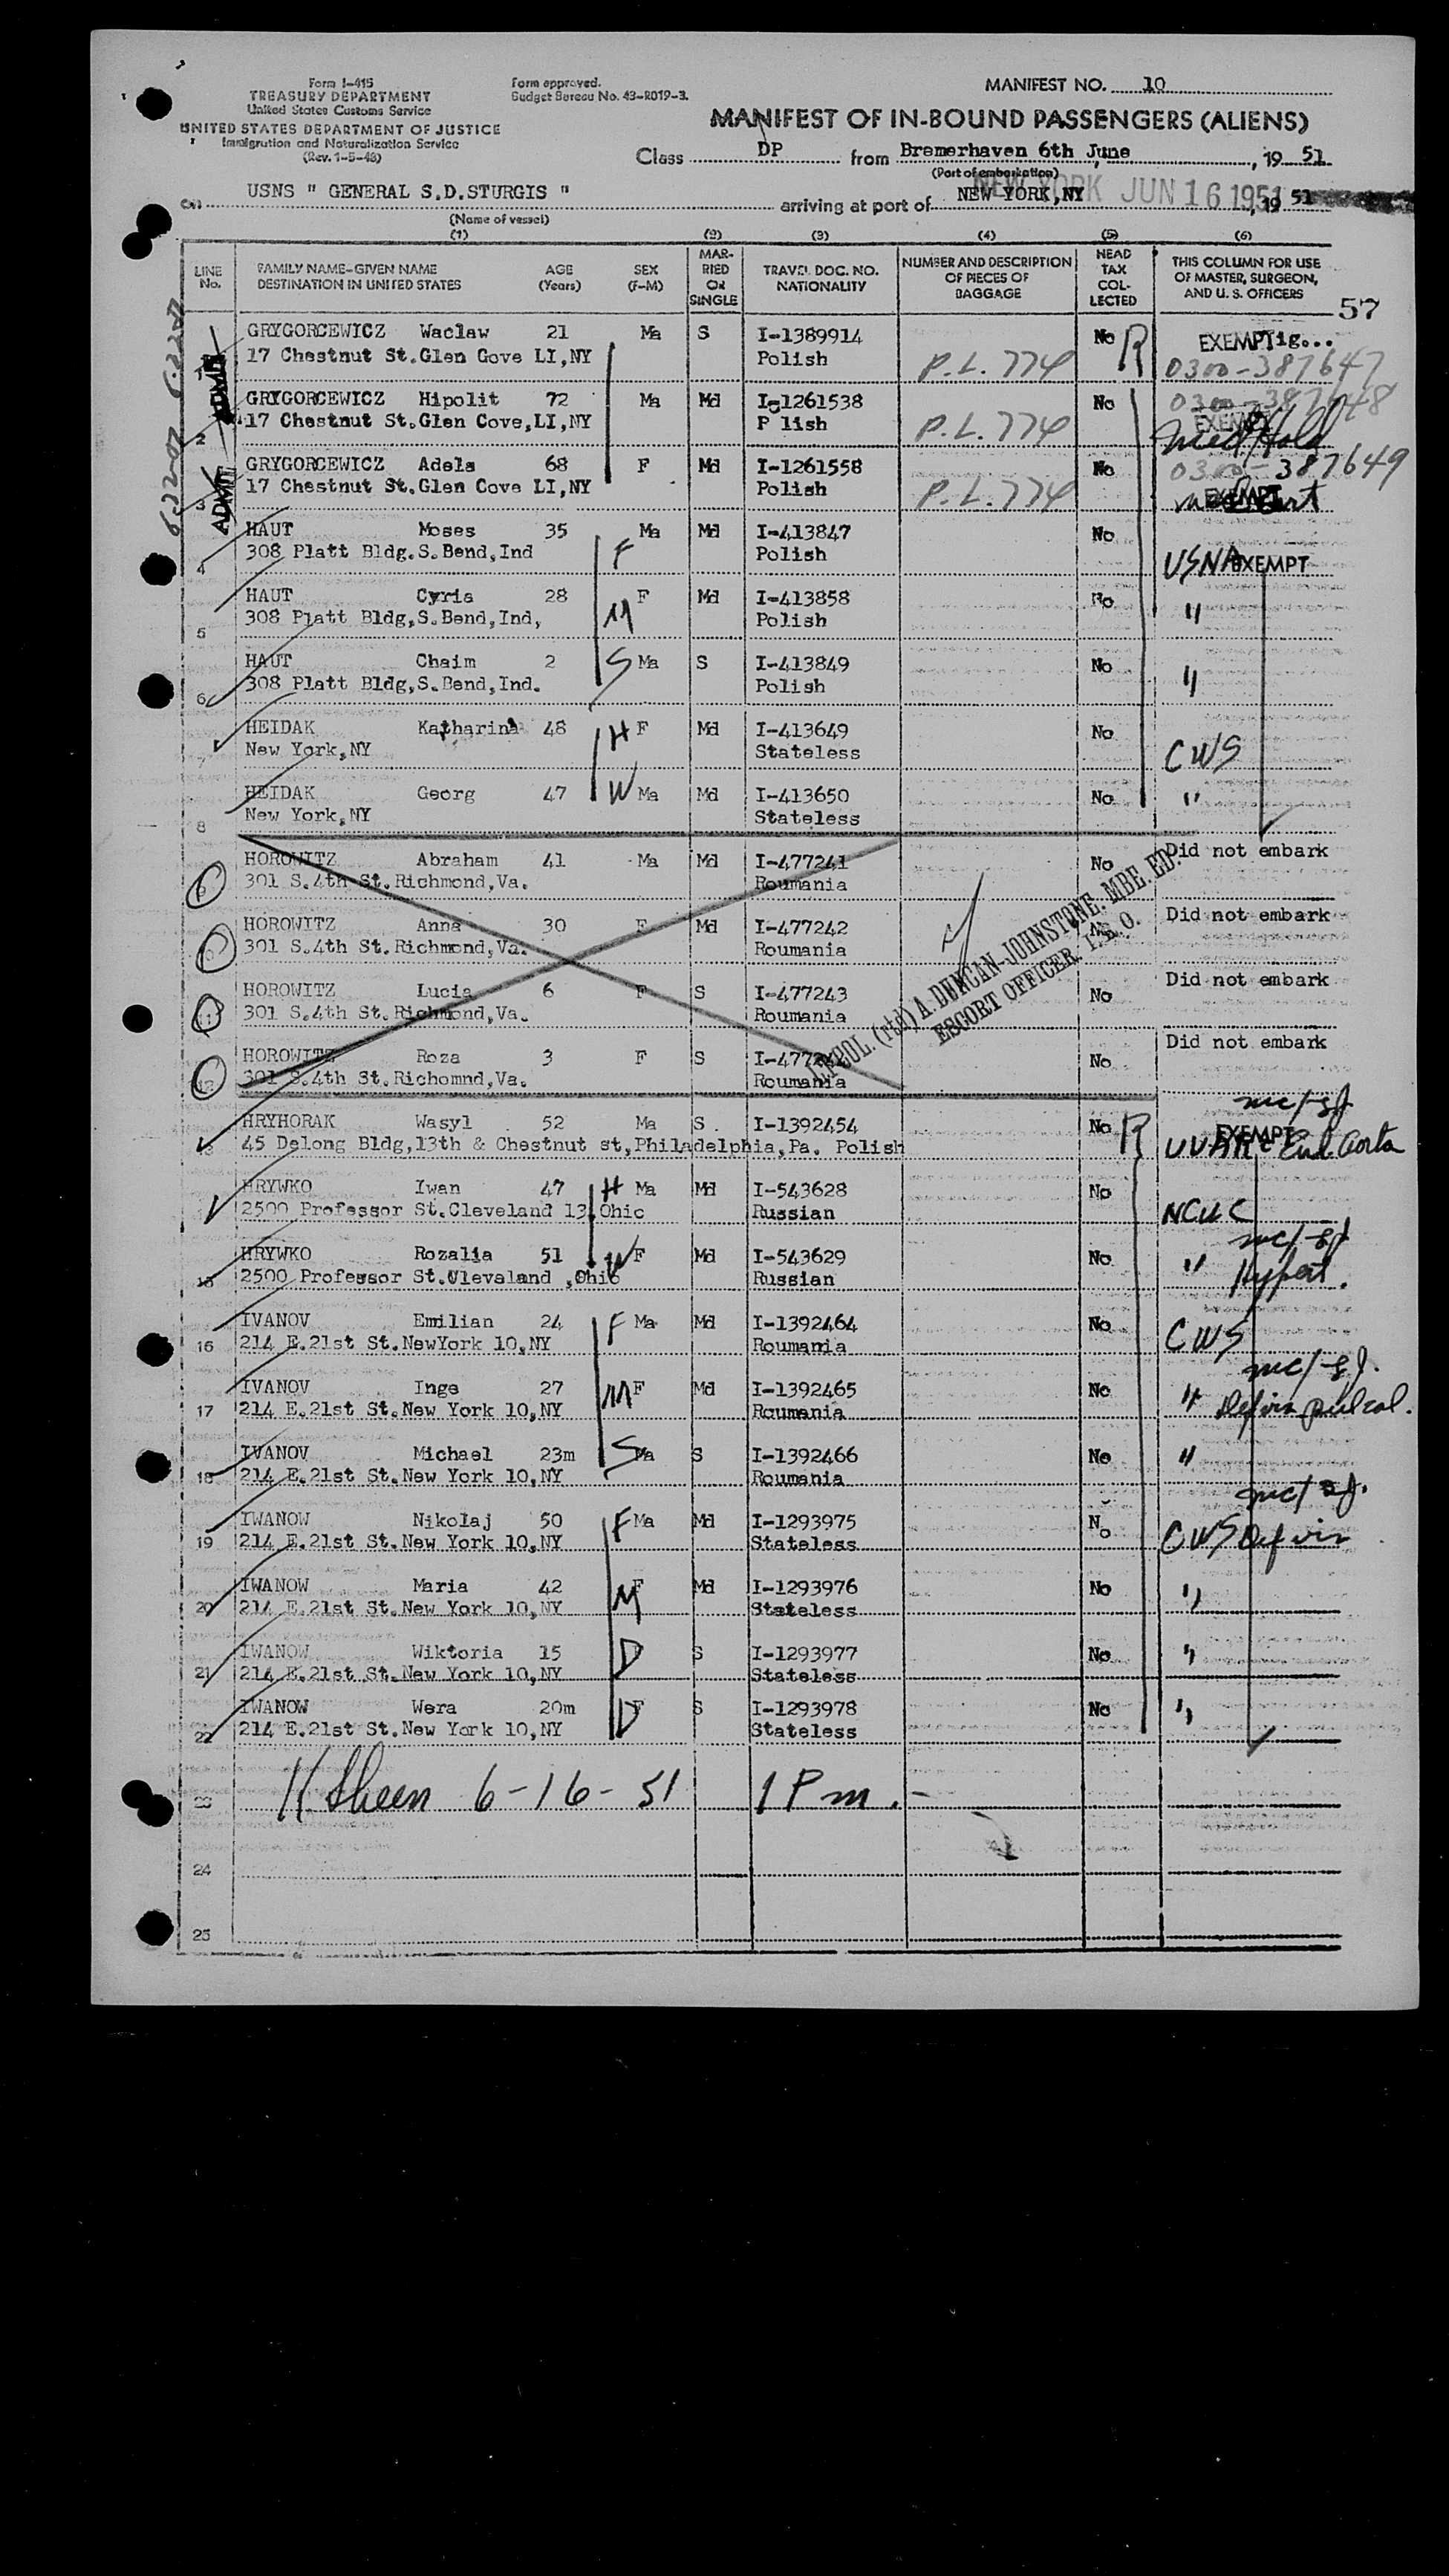 Form I-415
TREASURY DEPARTMENT
United States Customs Service
UNITED STATES DEPARTMENT OF JUSTICE
Immigration and Naturalization Service
(Rev. 1-5-48)
Form approved.
Budget Bureau No. 43-R019-3.
MANIFEST NO. 10
MANIFEST OF IN-BOUND PASSENGERS (ALIENS)
Class DP from Bremerhaven 6th June, 19 51
(Port of embarkation)
NEW YORK JUN 16 1951
on USNS " GENERAL S.D.STURGIS " arriving at port of NEW YORK,NY, 19 51
(Name of vessel)
(1) (2) (3) (4) (5) (6)
LINE No. FAMILY NAME-GIVEN NAME DESTINATION IN UNITED STATES AGE (Years) SEX (F-M) MARRIED OR SINGLE TRAVEL DOC. NO. NATIONALITY NUMBER AND DESCRIPTION OF PIECES OF BAGGAGE HEAD TAX COLLECTED THIS COLUMN FOR USE OF MASTER, SURGEON, AND U. S. OFFICERS
57
GRYGORCEWICZ Waclaw 21 Ma S I-1389914 No R EXEMPT
1 17 Chestnut St.Glen Gove LI,NY Polish P.L. 774 0300-387647
ADMIT
GRYGORCEWICZ Hipolit 72 Ma Md I-1261538 No 0300-387648
2 17 Chestnut St.Glen Cove,LI,NY P lish P.L. 774 EXEMPT Med Hold
GRYGORCEWICZ Adela 68 F Md I-1261558 No 0300-387649
3 17 Chestnut St.Glen Cove LI,NY Polish P.L. 774 EXEMPT
ADMIT
HAUT Moses 35 Ma Md I-413847 No
4 308 Platt Bldg.S.Bend,Ind F Polish USNA EXEMPT
HAUT Cyria 28 F Md I-413858 No
5 308 Platt Bldg,S.Bend,Ind, M Polish "
HAUT Chaim 2 S Ma S I-413849 No
6 308 Platt Bldg,S.Bend,Ind. Polish "
HEIDAK Katharina 48 H F Md I-413649 No
7 New York,NY Stateless CWS
HEIDAK Georg 47 W Ma Md I-413650 No "
8 New York,NY Stateless
HOROWITZ Abraham 41 Ma Md I-477241 No Did not embark
9 301 S.4th St.Richmond,Va. Roumania
HOROWITZ Anna 30 F Md I-477242 No Did not embark
10 301 S.4th St.Richmond,Va. Roumania
HOROWITZ Lucia 6 F S I-477243 No Did not embark
11 301 S.4th St.Richmond,Va. Roumania
HOROWITZ Roza 3 F S No Did not embark
12 301 S.4th St.Richomnd,Va. Roumania
LT.COL. (rtd) A. DUNCAN-JOHNSTONE. MBE. ED.
ESCORT OFFICER, I. R. O.
HRYHORAK Wasyl 52 Ma S. I-1392454 No R EXEMPT
13 45 Delong Bldg,13th & Chestnut st,Philadelphia,Pa. Polish Aorta
HRYWKO Iwan 47 H Ma Md I-543628 No
14 2500 Professor St.Cleveland 13.Ohio Russian NCWC
HRYWKO Rozalia 51 W F Md I-543629 No "
15 2500 Professor St.Cleveland ,Ohio Russian Hypert.
IVANOV Emilian 24 F Ma Md I-1392464 No
16 214 E.21st St.NewYork 10,NY Roumania CWS
IVANOV Inge 27 M F Md I-1392465 No
17 214 E.21st St.New York 10,NY Roumania "
IVANOV Michael 23m S Ma S I-1392466 No "
18 214 E.21st St.New York 10,NY Roumania
IWANOW Nikolaj 50 F Ma Md I-1293975 No
19 214 E.21st St.New York 10,NY Stateless CWS Def vis
IWANOW Maria 42 F Md I-1293976 No "
20 214 E.21st St.New York 10,NY M Stateless
IWANOW Wiktoria 15 D S I-1293977 No "
21 214 E.21st St.New York 10,NY Stateless
IWANOW Wera 20m F S I-1293978 No "
22 214 E.21st St.New York 10,NY D Stateless
23 Sheen 6-16-51 1 Pm.
24
25